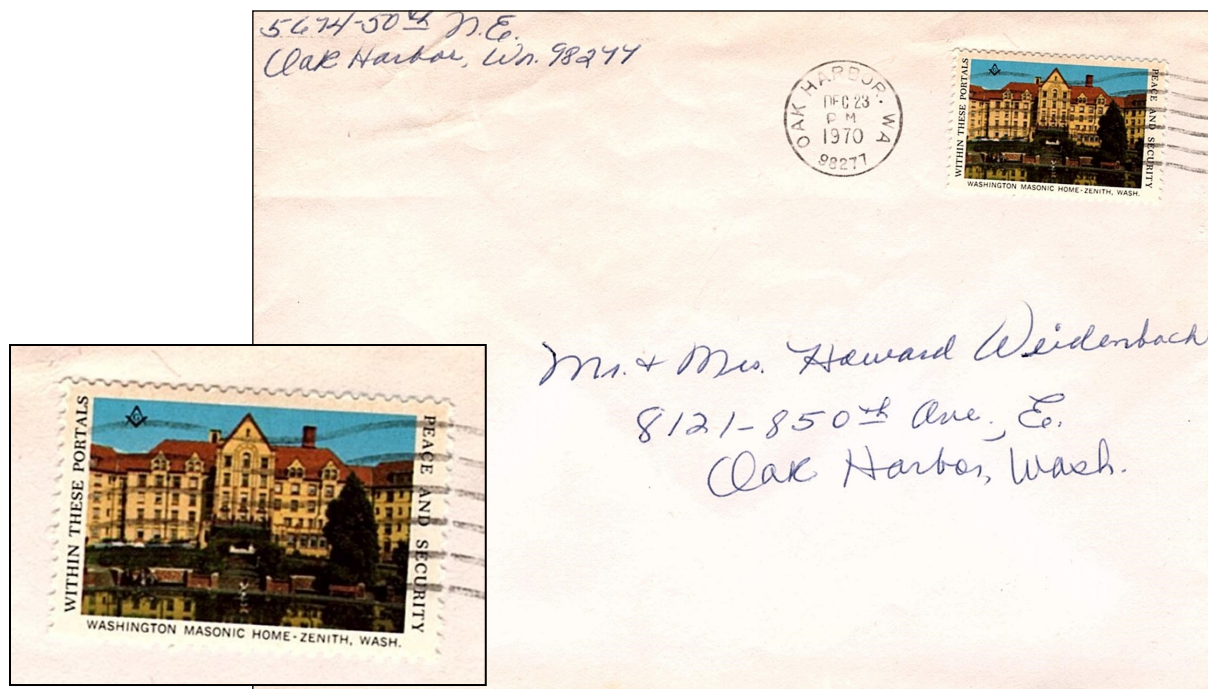 5674-50th N.E.
Oak Harbor, Wn. 98277
OAK HARBOR, WA
DEC 23
PM
1970
98277
WITHIN THESE PORTALS
PEACE AND SECURITY
WASHINGTON MASONIC HOME-ZENITH, WASH.
Mr. + Mrs. Howard Weidenbach
8121-850th Ave., E.
Oak Harbor, Wash.
G
WITHIN THESE PORTALS
PEACE AND SECURITY
WASHINGTON MASONIC HOME-ZENITH, WASH.